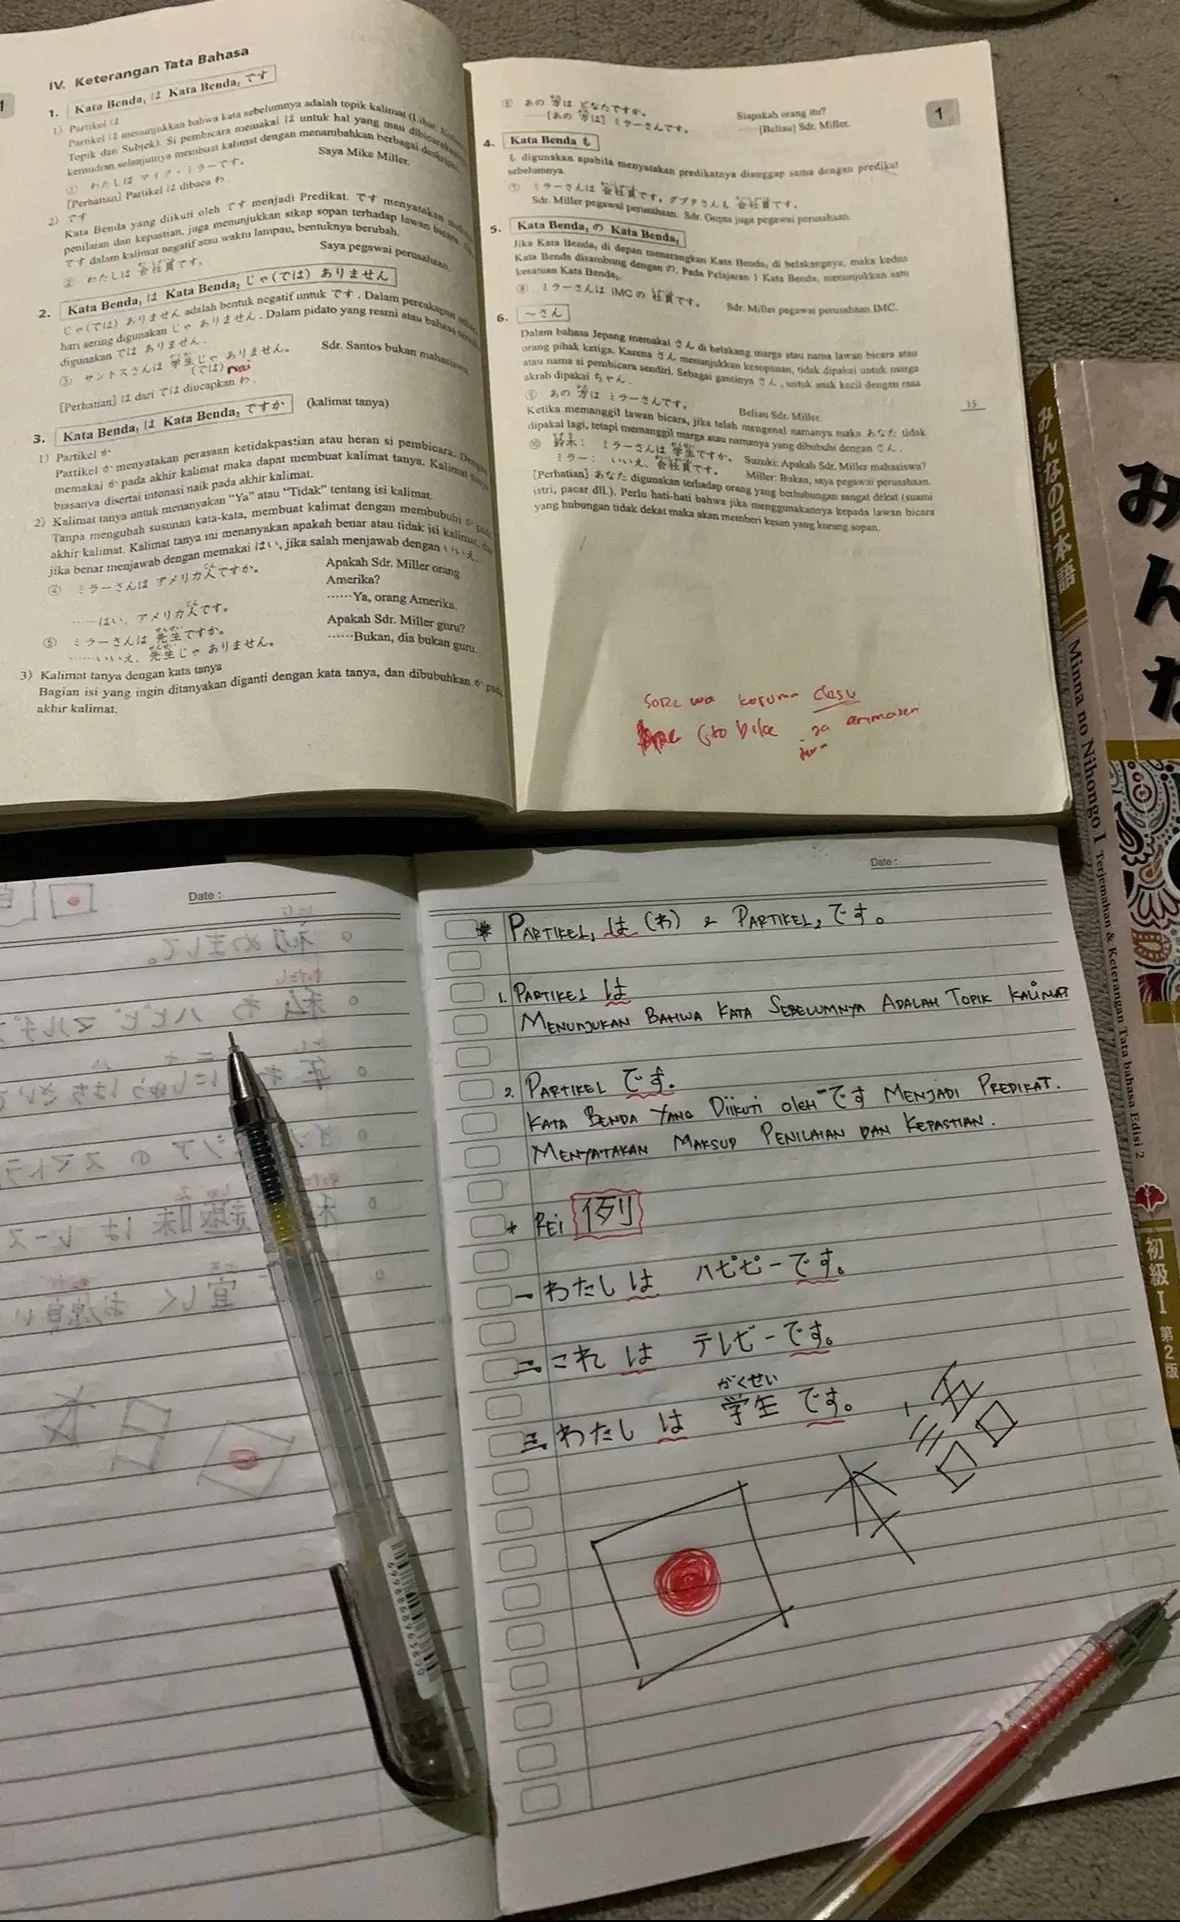 IV. Keterangan Tata Bahasa
1
1. Kata Benda₁ は Kata Benda₂ です
1) Partikel は
Partikel は menunjukkan bahwa kata sebelumnya adalah topik kalimat
Topik dan Subjek). Si pembicara memakai は untuk hal yang mau dibicarakan
kemudian selanjutnya membuat kalimat dengan menambahkan berbagai
① わたしは マイク・ミラーです。 Saya Mike Miller.
[Perhatian] Partikel は dibaca わ.
2) です
Kata Benda yang diikuti oleh です menjadi Predikat. です menyatakan
penilaian dan kepastian, juga menunjukkan sikap sopan terhadap lawan bicara.
です dalam kalimat negatif atau waktu lampau, bentuknya berubah.
② わたしは 会社員です。 Saya pegawai perusahaan.
2. Kata Benda₁ は Kata Benda₂ じゃ(では) ありません
じゃ(では) ありません adalah bentuk negatif untuk です. Dalam percakapan
hari sering digunakan じゃ ありません. Dalam pidato yang resmi atau bahasa
digunakan では ありません.
③ サントスさんは 学生じゃ ありません。 Sdr. Santos bukan mahasiswa.
(では)
[Perhatian] は dari では diucapkan わ.
3. Kata Benda₁ は Kata Benda₂ ですか (kalimat tanya)
1) Partikel か
Partikel か menyatakan perasaan ketidakpastian atau heran si pembicara.
memakai か pada akhir kalimat maka dapat membuat kalimat tanya. Kalimat
biasanya disertai intonasi naik pada akhir kalimat.
2) Kalimat tanya untuk menanyakan “Ya” atau “Tidak” tentang isi kalimat.
Tanpa mengubah susunan kata-kata, membuat kalimat dengan membubuhi か pada
akhir kalimat. Kalimat tanya ini menanyakan apakah benar atau tidak isi kalimat,
jika benar menjawab dengan memakai はい, jika salah menjawab dengan いいえ.
④ ミラーさんは アメリカ人ですか。 Apakah Sdr. Miller orang
Amerika?
……はい、アメリカ人です。 ……Ya, orang Amerika.
⑤ ミラーさんは 先生ですか。 Apakah Sdr. Miller guru?
……いいえ、先生じゃ ありません。 ……Bukan, dia bukan guru.
3) Kalimat tanya dengan kata tanya
Bagian isi yang ingin ditanyakan diganti dengan kata tanya, dan dibubuhkan か pada
akhir kalimat.
⑥ あの 方は どなたですか。 Siapakah orang itu?
……[あの 方は] ミラーさんです。 ……[Beliau] Sdr. Miller.
1
4. Kata Benda も
も digunakan apabila menyatakan predikatnya dianggap sama dengan predikat
sebelumnya.
⑦ ミラーさんは 会社員です。グプタさんも 会社員です。
Sdr. Miller pegawai perusahaan. Sdr. Gupta juga pegawai perusahaan.
5. Kata Benda₁ の Kata Benda₂
Jika Kata Benda₁ di depan menerangkan Kata Benda₂ di belakangnya, maka kedua
Kata Benda disambung dengan の. Pada Pelajaran 1 Kata Benda₁ menunjukkan satu
kesatuan Kata Benda₂.
⑧ ミラーさんは IMCの 社員です。 Sdr. Miller pegawai perusahaan IMC.
6. ～さん
Dalam bahasa Jepang memakai さん di belakang marga atau nama lawan bicara atau
orang pihak ketiga. Karena さん menunjukkan kesopanan, tidak dipakai untuk marga
atau nama si pembicara sendiri. Sebagai gantinya さん, untuk anak kecil dengan rasa
akrab dipakai ちゃん.
⑨ あの 方は ミラーさんです。 Beliau Sdr. Miller.
Ketika memanggil lawan bicara, jika telah mengenal namanya maka あなた tidak
dipakai lagi, tetapi memanggil marga atau namanya yang dibubuhi dengan さん.
⑩ 鈴木： ミラーさんは 学生ですか。 Suzuki: Apakah Sdr. Miller mahasiswa?
ミラー： いいえ、会社員です。 Miller: Bukan, saya pegawai perusahaan.
[Perhatian] あなた digunakan terhadap orang yang berhubungan sangat dekat (suami
istri, pacar dll.). Perlu hati-hati bahwa jika menggunakannya kepada lawan bicara
yang hubungan tidak dekat maka akan memberi kesan yang kurang sopan.
15
Sore wa kuruma desu
bike ja arimasen
みんなの日本語
Minna no Nihongo I Terjemahan & Keterangan Tata bahasa Edisi 2
初級I 第2版
みんな
Date :
Date :
* PARTIKEL₁ は (わ) & PARTIKEL₂ です。
1. PARTIKEL は
MENUNJUKAN BAHWA KATA SEBELUMNYA ADALAH TOPIK KALIMAT
2. PARTIKEL です。
KATA BENDA YANG DIIKUTI OLEH です MENJADI PREDIKAT.
MENYATAKAN MAKSUD PENILAIAN DAN KEPASTIAN.
* REI 例
一 わたし は ハビビーです。
二 これ は テレビーです。
がくせい
三 わたし は 学生 です。
日本語